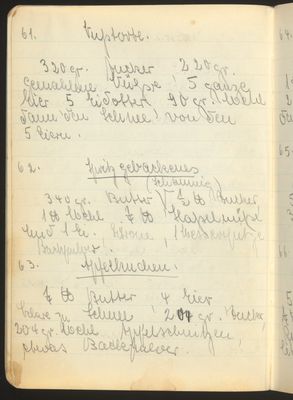 61. Nußtorte.
320 gr. Zucker, 220 gr.
gemahlene Nüsse, 5 ganze
Eier 5 Eidotter, 90 gr. Mehl
dann den Schnee von den
5 Eiern.
62. Spritzgebackenes
340 gr. Butter, Zucker
1 ℔ Mehl, ¼ ℔ Haselnüsse
und 1 Ei, 1 Messerspitze
Backpulver
63. Apfelkuchen.
¼ ℔ Butter, 4 Eier
Schnee, 204 gr. Zucker,
204 gr. Mehl, Apfelschnitzen,
etwas Backpulver.